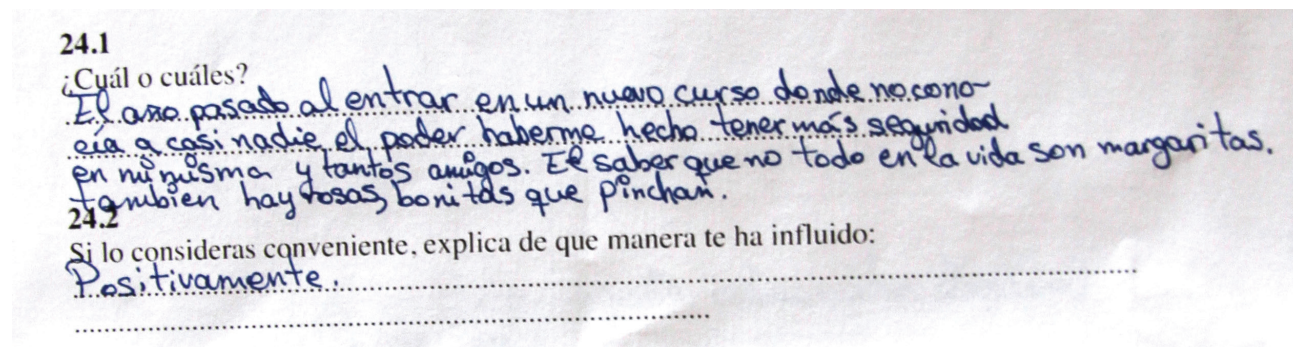 24.1
¿Cuál o cuáles?
El año pasado al entrar en un nuevo curso donde no cono-
cía a casi nadie, el poder haberme hecho tener más seguridad
en mi misma y tantos amigos. El saber que no todo en la vida son margaritas.
tambien hay rosas, bonitas que pinchan.
24.2
Si lo consideras conveniente, explica de que manera te ha influido:
Positivamente.